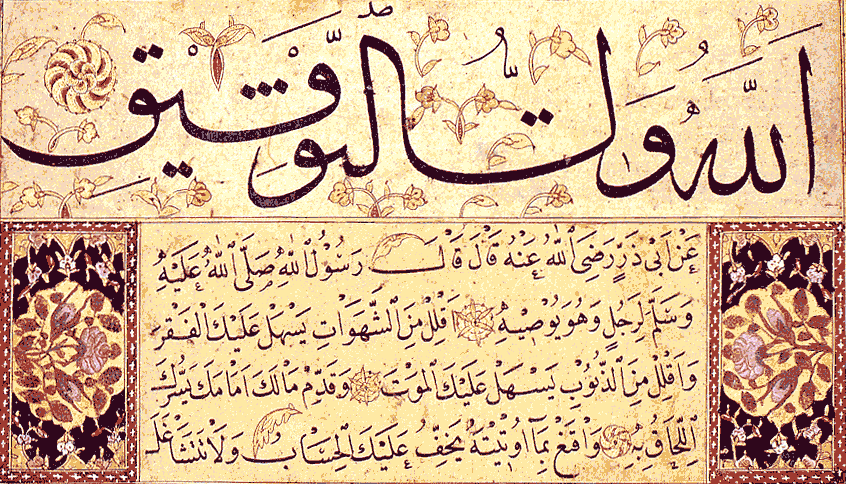 اَللّٰهُ وَلِيُّ التَّوْفِيقِ
عَنْ اَبِى ذَرٍّ رَضِىَ اللّٰهُ عَنْهُ قَالَ قَالَ رَسُولُ اللّٰهِ صَلَّى اللّٰهُ عَلَيْهِ
وَسَلَّمَ لِرَجُلٍ وَهُوَ يُوصِيهِ اَقْلِلْ مِنَ الشَّهَوَاتِ يَسْهُلْ عَلَيْكَ الْفَقْرُ
وَاَقْلِلْ مِنَ الذُّنُوبِ يَسْهُلْ عَلَيْكَ الْمَوْتُ وَقَدِّمْ مَالَكَ اَمَامَكَ يَسُرُّكَ
اللِّحَاقُ بِهِ وَاقْنَعْ بِمَا اُوتِيتَهُ يَخِفُّ عَلَيْكَ الْحِسَابُ وَلَا تَتَشَاغَلْ